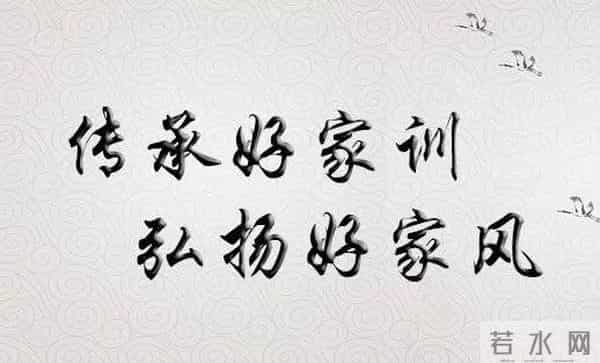 传承好家训
弘扬好家风
若水网